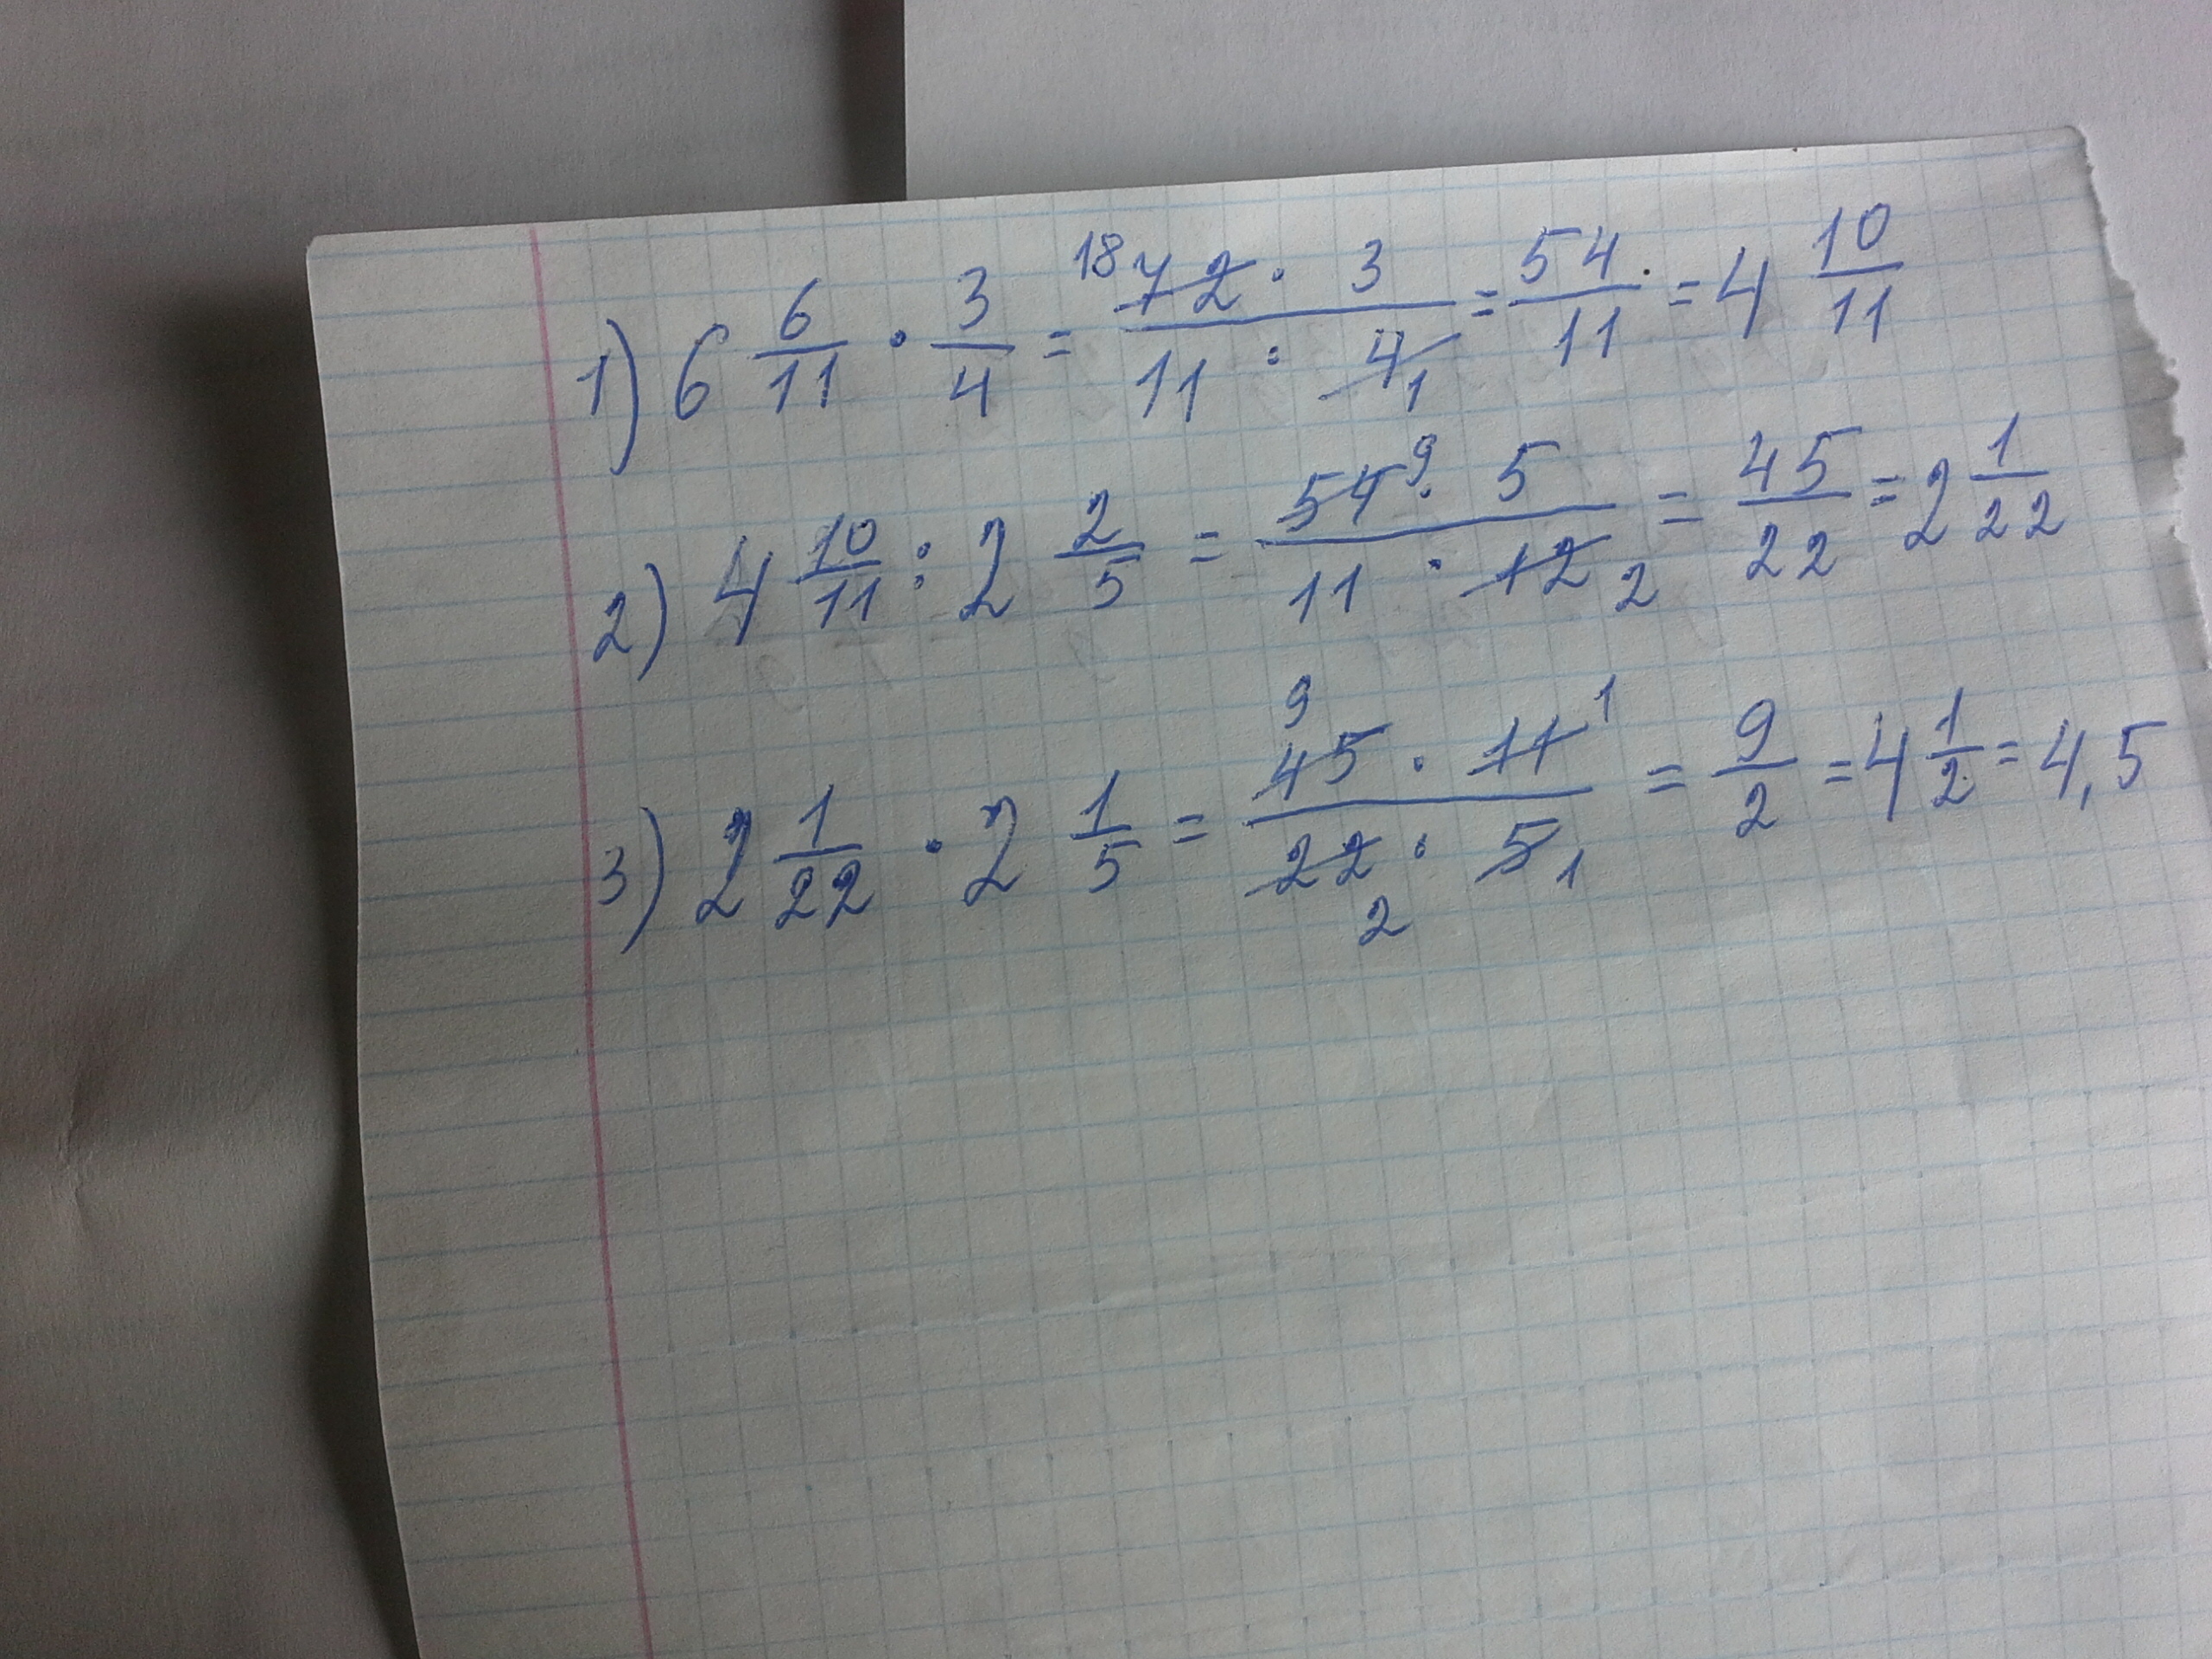 1) 6 6/11 · 3/4 = 18 72 · 3 / 11 · 4 1 = 54/11 = 4 10/11
2) 4 10/11 : 2 2/5 = 54 9 · 5 / 11 · 12 2 = 45/22 = 2 1/22
3) 2 1/22 · 2 1/5 = 9 45 · 11 1 / 22 2 · 5 1 = 9/2 = 4 1/2 = 4,5